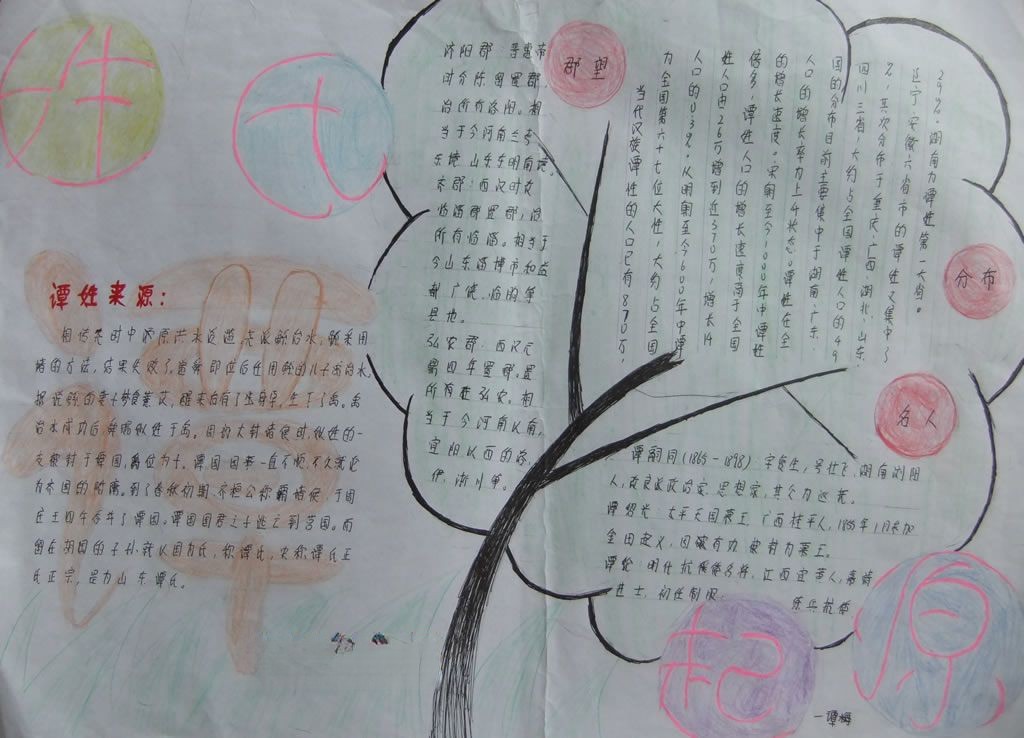 姓
氏
起
原
谭姓来源：
相传尧时中原洪水泛滥，尧派鲧治水，鲧采用
堵的方法，结果失败了。舜帝即位后任用鲧的儿子禹治水。
据说鲧的妻子梦食薏苡，醒来后有了生了禹。禹
治水成功后舜赐姒姓于禹。周初大封诸侯时姒姓的一
支被封于谭国，爵位为子。谭国国势一直不强，不久就沦
为齐国的附庸。到了春秋初期，齐桓公称霸诸侯，于周
庄王四年吞并了谭国。谭国国君之子逃亡到莒国。而
留在胡国的子孙就以国为氏，称谭氏，史称谭氏正
氏正宗，是为山东谭氏。
郡望
济阳郡：晋惠帝
时分陈留置郡，
治所有洛阳。相
当于今河南兰考
东境，山东东明南境。
齐郡：西汉时改
临淄郡置郡，治
所有临淄。相当于
今山东淄博市和益
都、广饶、临朐等
县地。
弘农郡：西汉元
鼎四年置郡。置
所有在弘农。相
当于今河南以南，
宜阳以西的洛、
伊、淅川等。
分布
当代汉族谭姓的人口已有870万，
为全国第六十七位大姓，大约占全国
人口的0.39%。从明朝至今600年中谭
姓人口由26万增到近370万，增长14
倍多，谭姓人口的增长速度高于全国
的增长速度。宋朝至今1000年中谭姓
人口的增长率为上升状态。谭姓在全
国的分布目前主要集中于湖南、广东、
四川三省，大约占全国谭姓人口的49
%，其次分布于重庆、广西、湖北、山东、
辽宁、安徽六省市的谭姓又集中了
29%。湖南为谭姓第一大省。
名人
谭嗣同(1865-1898)：字复生，号壮飞，湖南浏阳
人，改良派政治家、思想家，其父为巡抚。
谭绍光：太平天国慕王，广西桂平人，1885年1月参加
金田起义，因骁有功被封为慕王。
谭纶：明代抗倭名将，江西宜黄人，嘉靖
进士，初任制服，
练兵抗倭
一谭梅